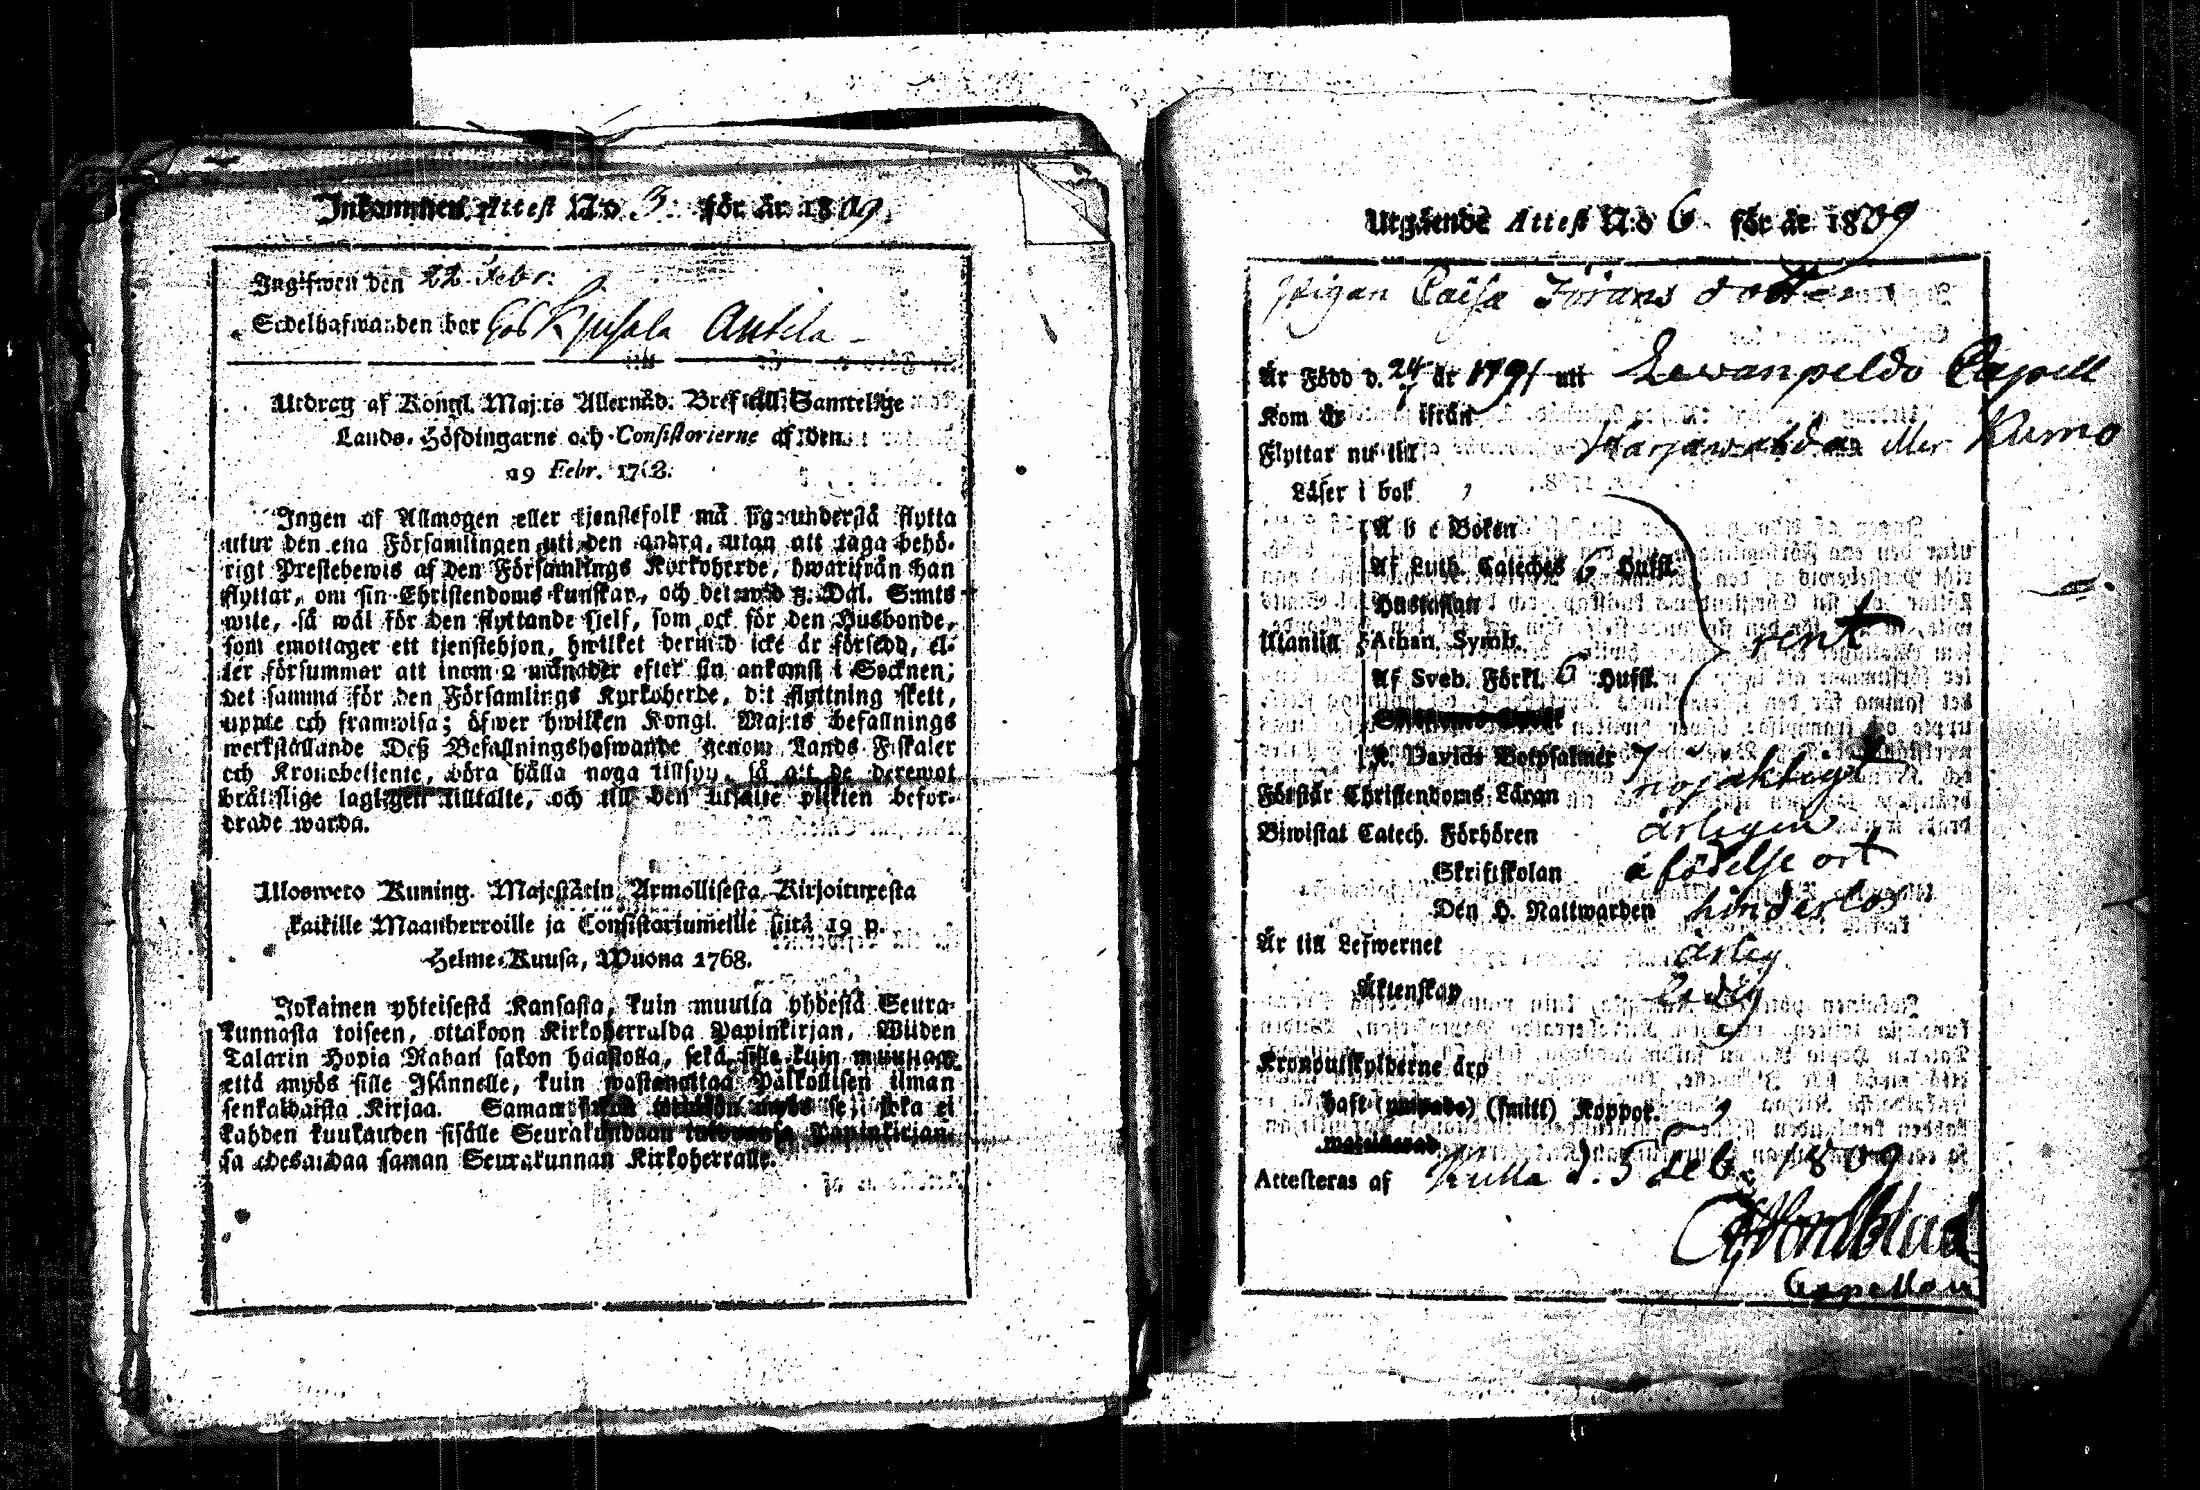 Inkommen Attest N:o 3. för år 1809.
Ingifwen den 22 Febr:
Sedelhafwanden bor hos Antila
Utdrag af Kongl. Maj:ts Allernåd. Bref till Samtelige
Lands-Höfdingarne och Consistorierne af den
19 Febr. 1768.
Ingen af Allmogen eller tjenstefolk må sig understå flytta
utur den ena Församlingen uti den andra, utan att taga behö-
rigt Prestebewis af den Församlings Kyrkoherde, hwarifrån han
flyttar, om sin Christendoms kunskap, och det wid 3. Dal. S:mts
wite, så wäl för den flyttande sjelf, som ock för den Husbonde,
som emottager ett tjenstehjon, hwilket dermed icke är försedd, el-
ler försummar att inom 2 månader efter sin ankomst i Socknen;
det samma för den Församlings Kyrkoherde, dit flyttning skett,
uppte och framwisa; öfwer hwilken Kongl. Maj:ts befallnings
werkställande Deß Befallningshafwande genom Lands-Fiskaler
och Kronobetjente, böra hålla noga tillsyn, så att de deremot
bråtslige lagligen tilltalte, och till den utsatte plikten befor-
drade warda.
Ulosweto Kuning. Majestätin Armollisesta Kirjoituxesta
kaikille Maanherroille ja Consistoriumeille siitä 19 p.
Helme-Kuusa, Wuona 1768.
Jokainen yhteisestä Kansasta, kuin muulla yhdestä Seura-
kunnasta toiseen, ottakoon Kirkoherralda Papinkirjan, Wiiden
Talarin Hopia Rahan sakon haastolla, sekä sille kuin muuttaa,
että myös sille Isännelle, kuin wastanottaa Palkollisen ilman
senkaldaista Kirjaa. Saman sakon myös se joka ei
kahden kuukauden sisälle Seurakundaan Papinkirjan-
sa edesandaa saman Seurakunnan Kirkoherralle.
Utgående Attest N:o 6. för år 1809
Pigan Caisa Jörans dotter
Är Född d. 24/7 år 1791 uti Lewanpeldo Capell
Kom år ifrån
Flyttar nu till Harjawalda eller Kumo
Läser i bok
A b c Boken
Af Luth. Cateches 6 Hufst.
Hustaflan
Utantill Athan. Symb. rent
Af Sveb. Förkl. 6 Hufst.
K. Davids Botpsalmer 7
Förstår Christendoms Läran nöjaktigt
Biwistat Catech. Förhören årligen
Skriftskolan å födelse ort
Den H. Nattwarden hinderlös
Är till Lefwernet ärlig
Äktenskap Ledig
Kronoutskylderne äro
haft (smitt) Koppor
Attesteras af Kulla d. 5 Feb. 1809
Capellan